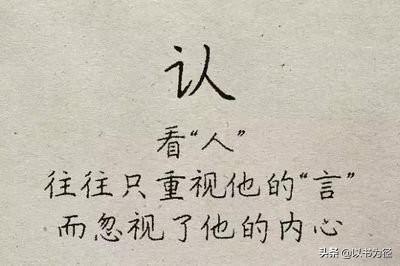 认
看“人”
往往只重视他的“言”
而忽视了他的内心
头条 @以书为径